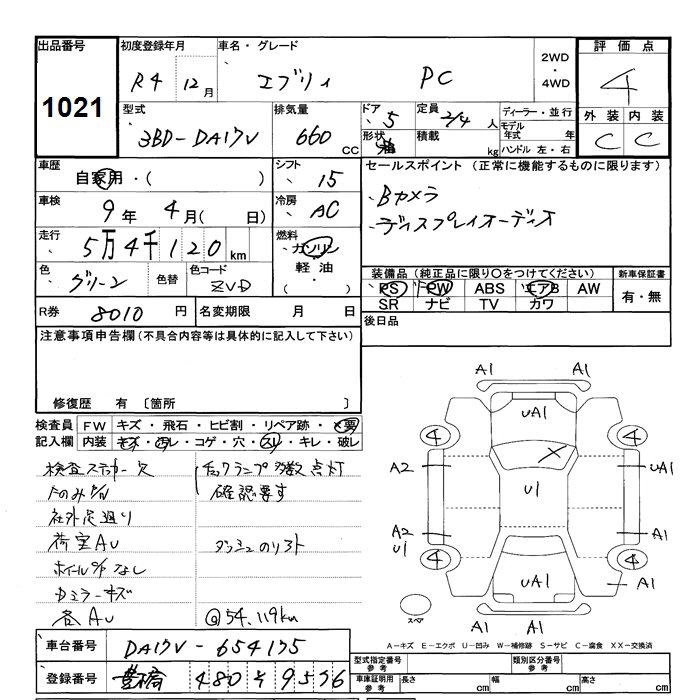 出品番号
1021
初度登録年月
R4 12月
車名・グレード
エブリィ PC
2WD
・
4WD
評価点
4
外装 内装
C C
型式
3BD-DA17V
排気量
660 CC
ドア
5
形状
定員
2/4 人
積載
kg
ディーラー・並行
モデル年式 年
ハンドル 左・右
車歴
自家用・( )
シフト
15
セールスポイント (正常に機能するものに限ります)
・Bカメラ
・ディスプレイオーディオ
車検
9年 4月( 日)
冷房
AC
走行
5万4千120km
燃料
ガソリン
軽油
( )
色
グリーン
色替
色コード
ZVD
装備品 (純正品に限り〇をつけてください)
PS PW ABS エアB AW
SR ナビ TV カワ
新車保証書
有・無
R券 8010円
名変期限 月 日
後日品
注意事項申告欄(不具合内容等は具体的に記入して下さい)
修復歴 有 〔箇所 〕
検査員
記入欄
FW キズ・飛石・ヒビ割・リペア跡・X要
内装 キズ・汚レ・コゲ・穴・スレ・キレ・破レ
検査ステッカー欠
社外足廻り
荷室AU
ホイールC/Pなし
Dミラーキズ
各AU
チェックランプ多数点灯
確認要す
@54,119km
A1 A1
UA1
4 4
A2 UA1
U1
A2 A1
U1
4 4
UA1 A1
スペア
A1 A1
A-キズ E-エクボ U-凹み W-補修跡 S-サビ C-腐食 XX-交換済
車台番号 DA17V-654175
登録番号 豊橋 480 そ 9556
型式指定番号
参考
類別区分番号
参考
車庫証明用
参考
長さ cm 幅 cm 高さ cm